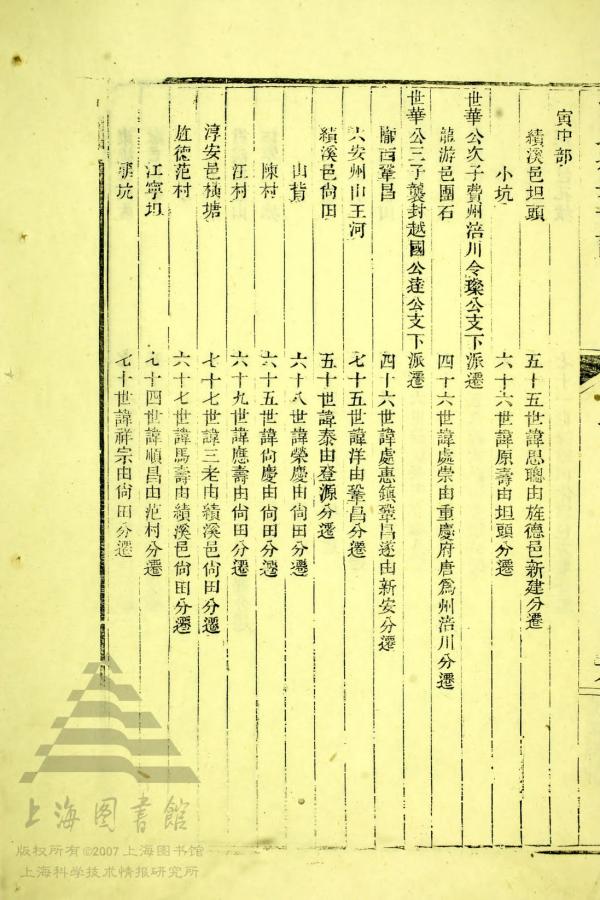 寅中部
績溪邑坦頭 五十五世諱思聰由旌德邑新建分遷
小坑 六十六世諱原壽由坦頭分遷
世華公次子費州涪川令璨公支下派遷
龍游邑團石 四十六世諱處崇由重慶府唐爲州涪川分遷
世華公三子襲封越國公達公支下派遷
隴西鞏昌 四十六世諱處惠鎮鞏昌遂由新安分遷
六安州山王河 七十五世諱洋由鞏昌分遷
績溪邑尙田 五十世諱泰由登源分遷
山背 六十八世諱榮慶由尙田分遷
陳村 六十五世諱尙慶由尙田分遷
江村 六十九世諱應壽由尙田分遷
淳安邑橫塘 七十七世諱三老由績溪邑尙田分遷
旌德范村 六十七世諱馬壽由績溪邑尙田分遷
江寧坦 七十四世諱順昌由范村分遷
坑 七十世諱祥宗由尙田分遷
上海图书館
版权所有©2007上海图书馆
上海科学技术情报研究所